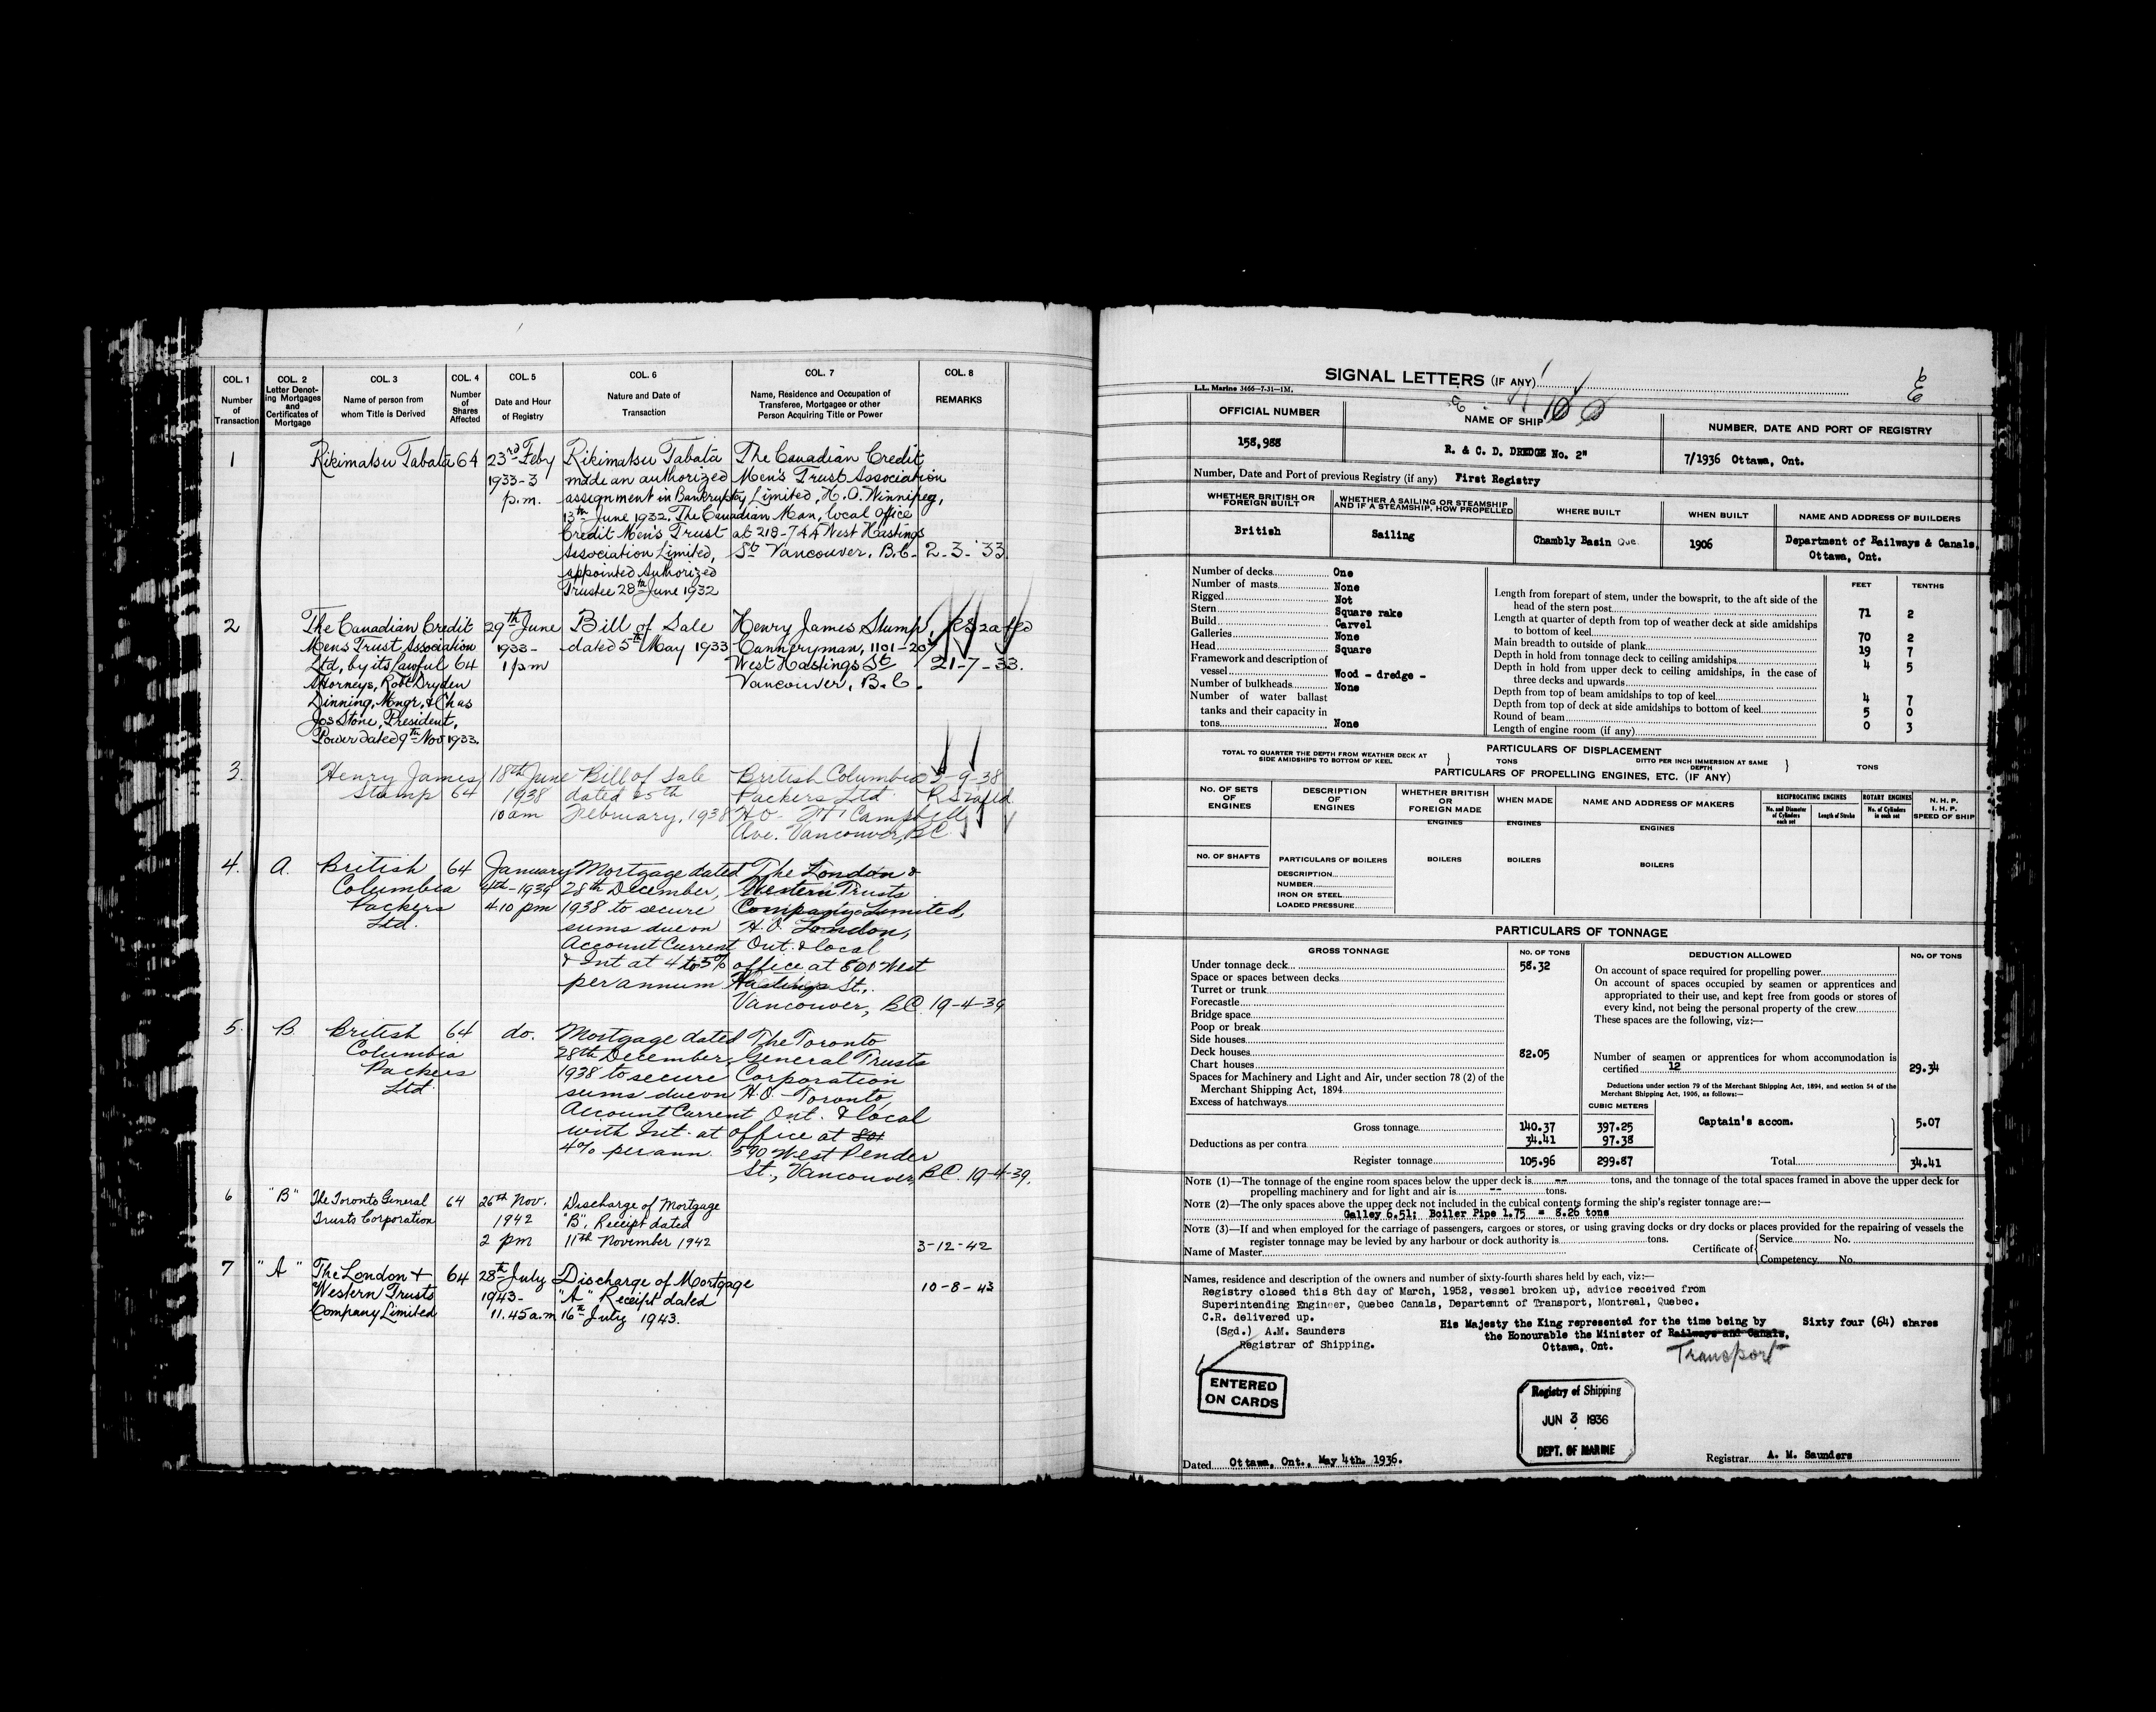 COL. 1
Number
of
Transaction
COL. 2
Letter Denot-
ing Mortgages
and
Certificates of
Mortgage
COL. 3
Name of person from
whom Title is Derived
COL. 4
Number
of
Shares
Affected
COL. 5
Date and Hour
of Registry
COL. 6
Nature and Date of
Transaction
COL. 7
Name, Residence and Occupation of
Transferee, Mortgagee or other
Person Acquiring Title or Power
COL. 8
REMARKS
1
Rikimatsu Tabata 64
23rd Feby
1933-3
p.m.
Rikimatsu Tabata
made an authorized
assignment in Bankruptcy
13th June 1932. The Canadian
Credit Men's Trust
Association Limited,
appointed Authorized
Trustee 28th June 1932
The Canadian Credit
Men's Trust Association
Limited, H.O. Winnipeg,
Man, local office
at 218-744 West Hastings
St Vancouver. B.C.
2-3-'33.
2
The Canadian Credit
Mens Trust Association
Ltd, by its Lawful 64
Attorneys, Robt Dryden
Dinning, Mngr, & Chas
Jos Stone, President,
Power dated 9th Nov 1933.
29th June
1933-
1 pm
Bill of Sale
dated 5th May 1933
Henry James Stump,
Canneryman, 1101-207
West Hastings St
Vancouver, B.C.
21-7-33.
3.
Henry James
Stump 64
18th June
1938
10 am
Bill of Sale
dated 25th
February, 1938
British Columbia
Packers Ltd
H.O. Campbell
Ave. Vancouver, BC
5-9-38
4.
A.
British
Columbia
Packers
Ltd.
64
January
4th-1939
4.10 pm
Mortgage dated
28th December,
1938 to secure
sums due on
Account Current
& Int at 4 to 5%
per annum
The London &
Western Trusts
Company Limited,
H.O. London,
Ont. & local
office at 801 West
Hastings St.,
Vancouver, BC
19-4-39
5.
B
British
Columbia
Packers
Ltd
64
do.
Mortgage dated
28th December,
1938 to secure
sums due on
Account Current
with Int. at
4% per ann.
The Toronto
General Trusts
Corporation
H.O. - Toronto,
Ont. & local
office at 801
590 West Pender
St., Vancouver BC.
19-4-39.
6
"B"
The Toronto General
Trusts Corporation
64
26th Nov.
1942
2 pm
Discharge of Mortgage
"B", Receipt dated
11th November 1942
3-12-42
7
"A"
The London +
Western Trusts
Company Limited
64
28th July
1943-
11.45 a.m
Discharge of Mortgage
"A" Receipt dated
16th July 1943.
10-8-43
SIGNAL LETTERS (IF ANY)
L.L. Marine 3466—7-31—1M.
OFFICIAL NUMBER
158,988
NAME OF SHIP
R. & C. D. DREDGE No. 2"
NUMBER, DATE AND PORT OF REGISTRY
7/1936 Ottawa, Ont.
Number, Date and Port of previous Registry (if any) First Registry
WHETHER BRITISH OR
FOREIGN BUILT
British
WHETHER A SAILING OR STEAMSHIP
AND IF A STEAMSHIP, HOW PROPELLED
Sailing
WHERE BUILT
Chambly Basin Que.
WHEN BUILT
1906
NAME AND ADDRESS OF BUILDERS
Department of Railways & Canals,
Ottawa, Ont.
Number of decks One
Number of masts None
Rigged Not
Stern Square rake
Build Carvel
Galleries None
Head Square
Framework and description of
vessel Wood - dredge -
Number of bulkheads None
Number of water ballast
tanks and their capacity in
tons None
FEET TENTHS
Length from forepart of stem, under the bowsprit, to the aft side of the
head of the stern post 71 2
Length at quarter of depth from top of weather deck at side amidships
to bottom of keel 70 2
Main breadth to outside of plank 19 7
Depth in hold from tonnage deck to ceiling amidships 4 5
Depth in hold from upper deck to ceiling amidships, in the case of
three decks and upwards
Depth from top of beam amidships to top of keel 4 7
Depth from top of deck at side amidships to bottom of keel 5 0
Round of beam 0 3
Length of engine room (if any)
PARTICULARS OF DISPLACEMENT
TOTAL TO QUARTER THE DEPTH FROM WEATHER DECK AT
SIDE AMIDSHIPS TO BOTTOM OF KEEL
TONS
DITTO PER INCH IMMERSION AT SAME
DEPTH
TONS
PARTICULARS OF PROPELLING ENGINES, ETC. (IF ANY)
NO. OF SETS
OF
ENGINES
DESCRIPTION
OF
ENGINES
WHETHER BRITISH
OR
FOREIGN MADE
ENGINES
WHEN MADE
ENGINES
NAME AND ADDRESS OF MAKERS
ENGINES
RECIPROCATING ENGINES
No. and Diameter
of Cylinders
each set
Length of Stroke
ROTARY ENGINES
No. of Cylinders
in each set
N. H. P.
I. H. P.
SPEED OF SHIP
NO. OF SHAFTS
PARTICULARS OF BOILERS
DESCRIPTION
NUMBER
IRON OR STEEL
LOADED PRESSURE
BOILERS
BOILERS
BOILERS
PARTICULARS OF TONNAGE
GROSS TONNAGE
NO. OF TONS
Under tonnage deck 58.32
Space or spaces between decks
Turret or trunk
Forecastle
Bridge space
Poop or break
Side houses
Deck houses 82.05
Chart houses
Spaces for Machinery and Light and Air, under section 78 (2) of the
Merchant Shipping Act, 1894
Excess of hatchways
CUBIC METERS
Gross tonnage 140.37 397.25
Deductions as per contra 34.41 97.38
Register tonnage 105.96 299.87
DEDUCTION ALLOWED
NO. OF TONS
On account of space required for propelling power
On account of spaces occupied by seamen or apprentices and
appropriated to their use, and kept free from goods or stores of
every kind, not being the personal property of the crew
These spaces are the following, viz:—
Number of seamen or apprentices for whom accommodation is
certified 12 29.34
Deductions under section 79 of the Merchant Shipping Act, 1894, and section 54 of the
Merchant Shipping Act, 1906, as follows:—
Captain's accom. 5.07
Total 34.41
NOTE (1)—The tonnage of the engine room spaces below the upper deck is -- tons, and the tonnage of the total spaces framed in above the upper deck for
propelling machinery and for light and air is -- tons.
NOTE (2)—The only spaces above the upper deck not included in the cubical contents forming the ship's register tonnage are:—
Galley 6.51; Boiler Pipe 1.75 = 8.26 tons
NOTE (3)—If and when employed for the carriage of passengers, cargoes or stores, or using graving docks or dry docks or places provided for the repairing of vessels the
register tonnage may be levied by any harbour or dock authority is tons.
Name of Master
Certificate of
Service No.
Competency No.
Names, residence and description of the owners and number of sixty-fourth shares held by each, viz:—
Registry closed this 8th day of March, 1952, vessel broken up, advice received from
Superintending Engineer, Quebec Canals, Departemnt of Transport, Montreal, Quebec.
C.R. delivered up.
(Sgd.) A.M. Saunders
Registrar of Shipping.
His Majesty the King represented for the time being by
the Honourable the Minister of Railways and Canals,
Ottawa, Ont.
Transport
Sixty four (64) shares
ENTERED
ON CARDS
Registry of Shipping
JUN 3 1936
DEPT. OF MARINE
Dated Ottawa, Ont., May 4th. 1936.
Registrar A. M. Saunders